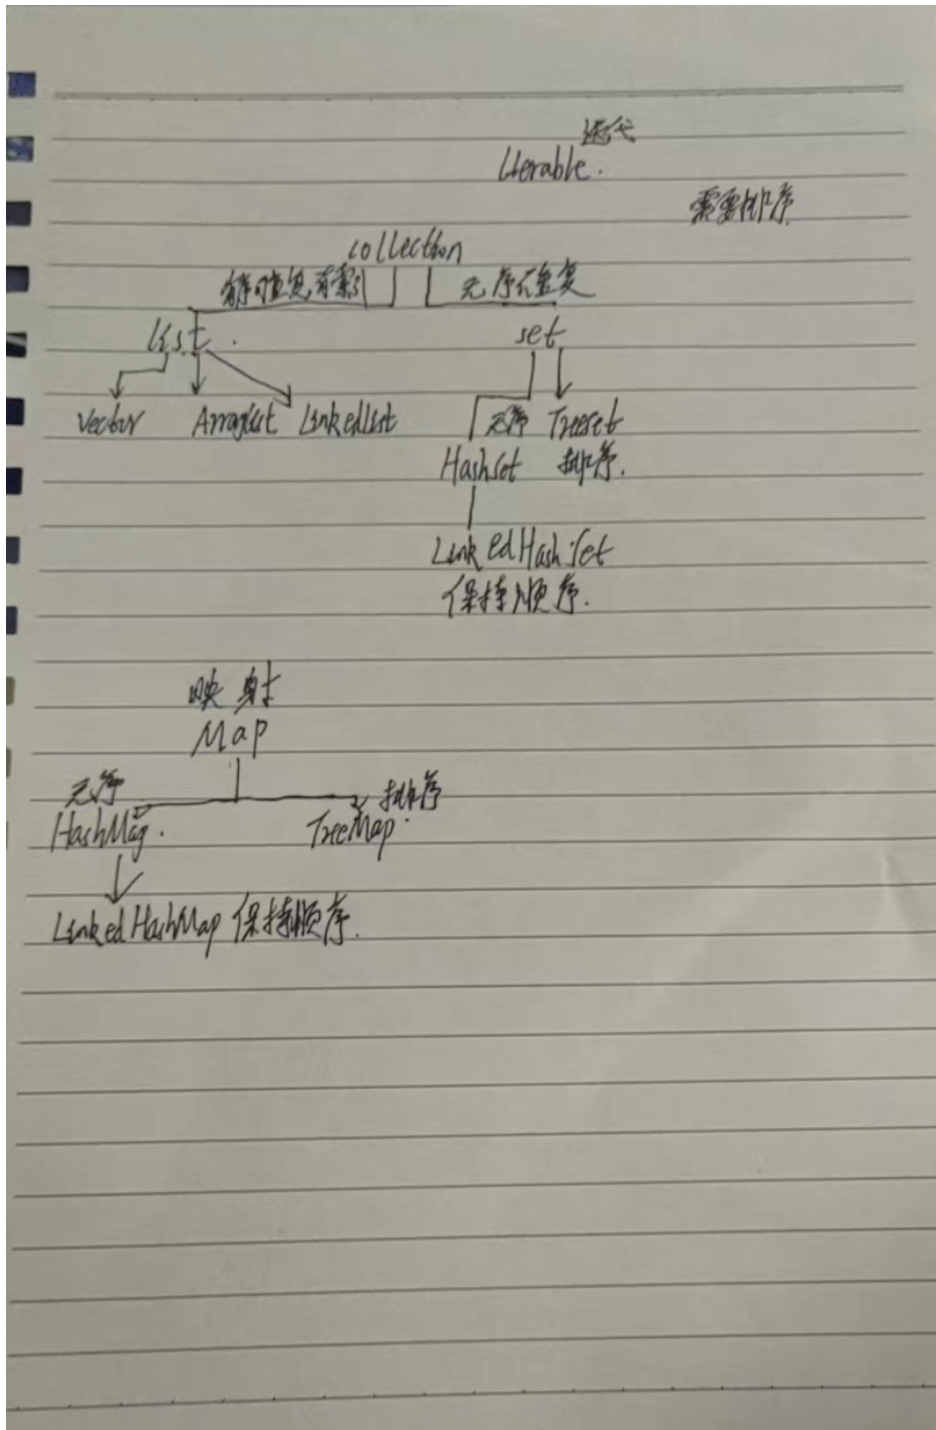 迭代
Iterable.
需要排序
collection
有序可重复有索引 无序不重复
List. set
Vector ArrayList LinkedList 无序 Treeset
Hashset 排序.
LinkedHashSet
保持顺序.
映射
Map
无序 排序
HashMap. TreeMap.
LinkedHashMap 保持顺序.